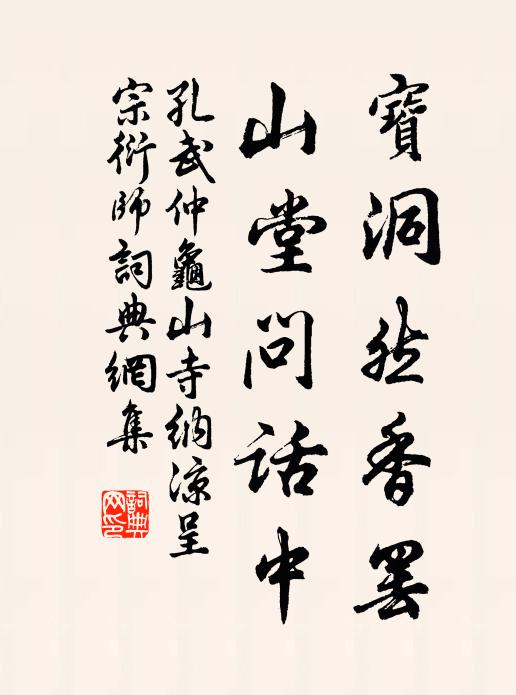 寶洞然香罢
山堂問話中
孔武仲龜山寺納涼呈
宗衍師詞典網集
詞典
网印